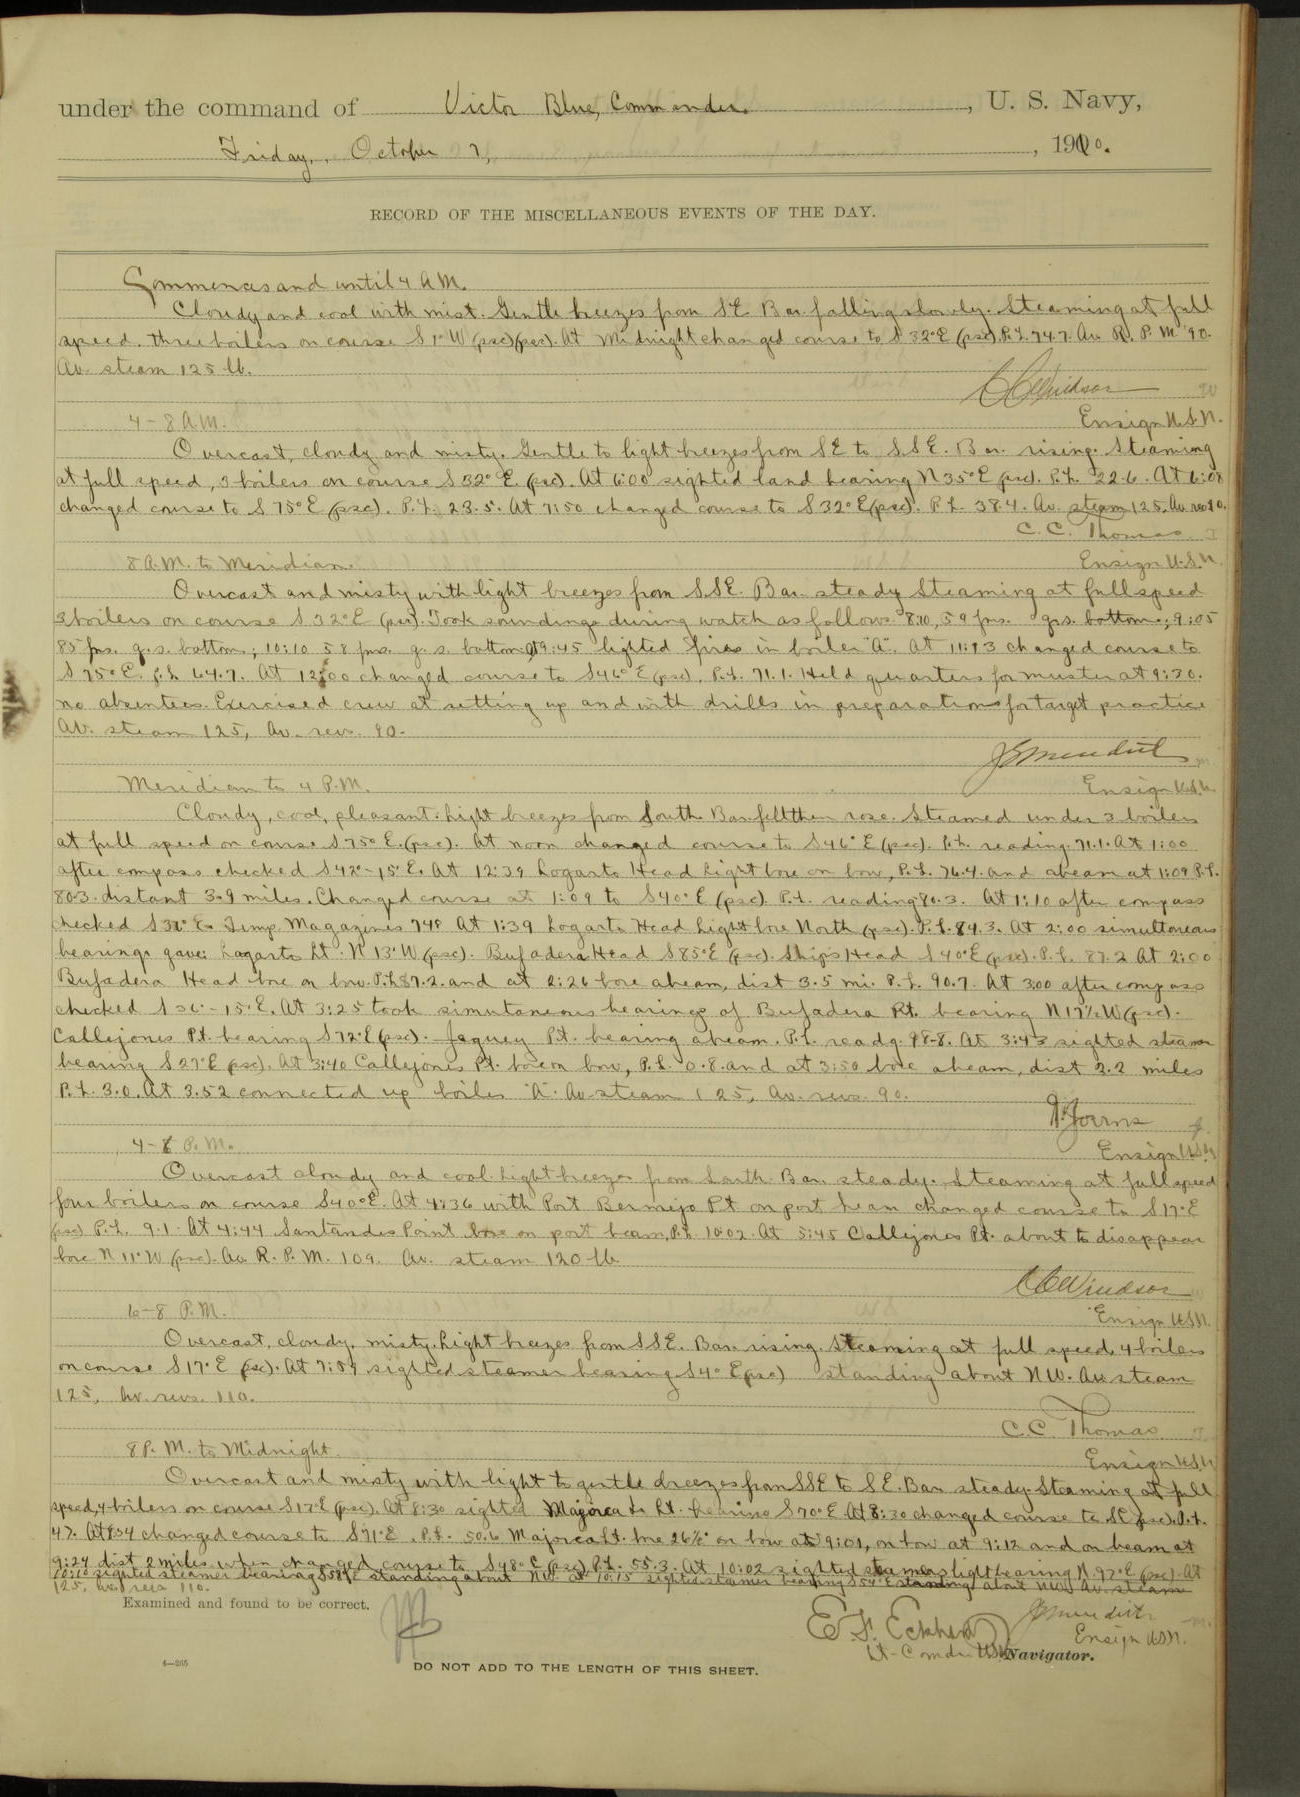 under the command of Victor Blue, Commander, U. S. Navy,
Friday, October 7, 1910.
RECORD OF THE MISCELLANEOUS EVENTS OF THE DAY.
Commences and until 4 A.M.
Cloudy and cool with mist. Gentle breezes from SE Bar. falling slowly. Steaming at full
speed. three boilers on course S 1° W (psc)(psc). At Midnight changed course to S 32° E (psc). P.L. 74.7. Av. R. P. M. 90.
Av. steam 125 lb.
C C Windsor
Ensign U.S.N.
4-8 A.M.
Overcast, cloudy and misty. Gentle to light breezes from SE to SSE. Bar. rising. Steaming
at full speed, 3 boilers on course S 32° E. (psc). At 6:00 sighted land bearing N 35° E (psc). P.L. 22.6. At 6:08
changed course to S 75° E (psc). P.L. 23.5. At 7:50 changed course to S 32° E (psc). P.L. 38.4. Av. steam 125, Av. revs 90.
C. C. Thomas
Ensign U.S.N.
8 A.M. to Meridian
Overcast and misty with light breezes from SSE. Bar. steady Steaming at full speed
3 boilers on course S 32° E (psc). Took soundings during watch as follows: 8:10, 59 fms. g.s. bottom; 9:05
85 fms. g.s. bottom; 10:10 58 fms. g. s. bottom At 9:45 lighted fires in boiler "A". At 11:13 changed course to
S 75° E. P.L. 64.7. At 12:00 changed course to S 46° E (psc), P.L. 71.1. Held quarters for muster at 9:30.
no absentees. Exercised crew at setting up and with drills in preparations for target practice
Av. steam 125, Av. revs. 90.
Ensign U.S.N.
Meridian to 4 P.M.
Cloudy, cool, pleasant. Light breezes from South. Bar. fell then rose. Steamed under 3 boilers
at full speed on course S 75° E. (psc). At noon changed course to S 46° E (psc). P.L. reading 71.1. At 1:00
after compass checked S 42°-15' E. At 12:39 Logarto Head Light bore on bow, P.L. 76.4. and abeam at 1:09 P.L.
80.3. distant 3.9 miles. Changed course at 1:09 to S 40° E (psc) P.L. reading 80.3. At 1:10 after compass
checked S 37° E. Temp. Magazines 74° At 1:39 Logarto Head Light bore North (psc). P.L. 84.3. At 2:00 simultaneous
bearings gave: Lagarto Lt. N 13° W (psc). Bufadera Head S 85° E (psc). Ships Head S 40° E (psc). P.L. 87.2 At 2:00
Bufadera Head bore on bow. P.L. 87.2. and at 2:26 bore abeam, dist 3.5 mi. P.L. 90.7. At 3:00 after compass
checked S 36°-15' E. At 3:25 took simultaneous bearings of Bufadera Pt. bearing N 17½ W (psc).
Callejones Pt. bearing S 72° E (psc). Jaquey Pt. bearing abeam. P.L. readg. 98.8. At 3:43 sighted steamer
bearing S 27° E (psc). At 3:40 Callejones Pt. bore on bow, P.L. 0.8. and at 3:50 bore abeam, dist 2.2 miles
P.L. 3.0. At 3.52 connected up boiler "A". Av. steam 125, Av. revs. 90.
Ensign U.S.N.
4-6 P.M.
Overcast cloudy and cool. Light breezes from South. Bar. steady. Steaming at full speed
four boilers on course S 40° E. At 4:36 with Port Bermejo Pt on port beam changed course to S 17° E
(psc) P.L. 9.1. At 4:44 Santandes Point bore on port beam, P.L. 10.02. At 5:45 Callejones Pt. about to disappear
bore N 11° W (psc). Av. R. P. M. 109. Av. steam 120 lb.
C C Windsor
Ensign U.S.N.
6-8 P.M.
Overcast, cloudy, misty. Light breezes from SSE. Bar. rising. Steaming at full speed, 4 boilers
on course S 17° E (psc). At 7:59 sighted steamer bearing S 4° E (psc) standing about NW. Av. steam
125, Av. revs. 110.
C. C. Thomas
Ensign U.S.N.
8 P.M. to Midnight
Overcast and misty with light to gentle breezes from SSE to SE. Bar. steady. Steaming at full
speed, 4 boilers on course S 17° E (psc). At 8:30 sighted Majorca Is Lt. bearing S 70° E. At 8:30 changed course to SE (psc), P.L.
47. At 8:34 changed course to S 71° E. P.L. 50.6 Majorca Lt. bore 26½° on bow at 9:01, on bow at 9:12 and on beam at
9:24 dist 2 miles when changed course to S 48° E (psc) P.L. 55.3. At 10:02 sighted steamers light bearing N 92° E (psc). At
10:10 sighted steamer bearing S 58° E standing about NW. at 10:15 sighted steamer bearing S 54° E standing about NW. Av. steam
125, Av. revs 110.
Examined and found to be correct.
Ensign USN.
Lt-Comdr U.S.N. Navigator.
4—265
DO NOT ADD TO THE LENGTH OF THIS SHEET.